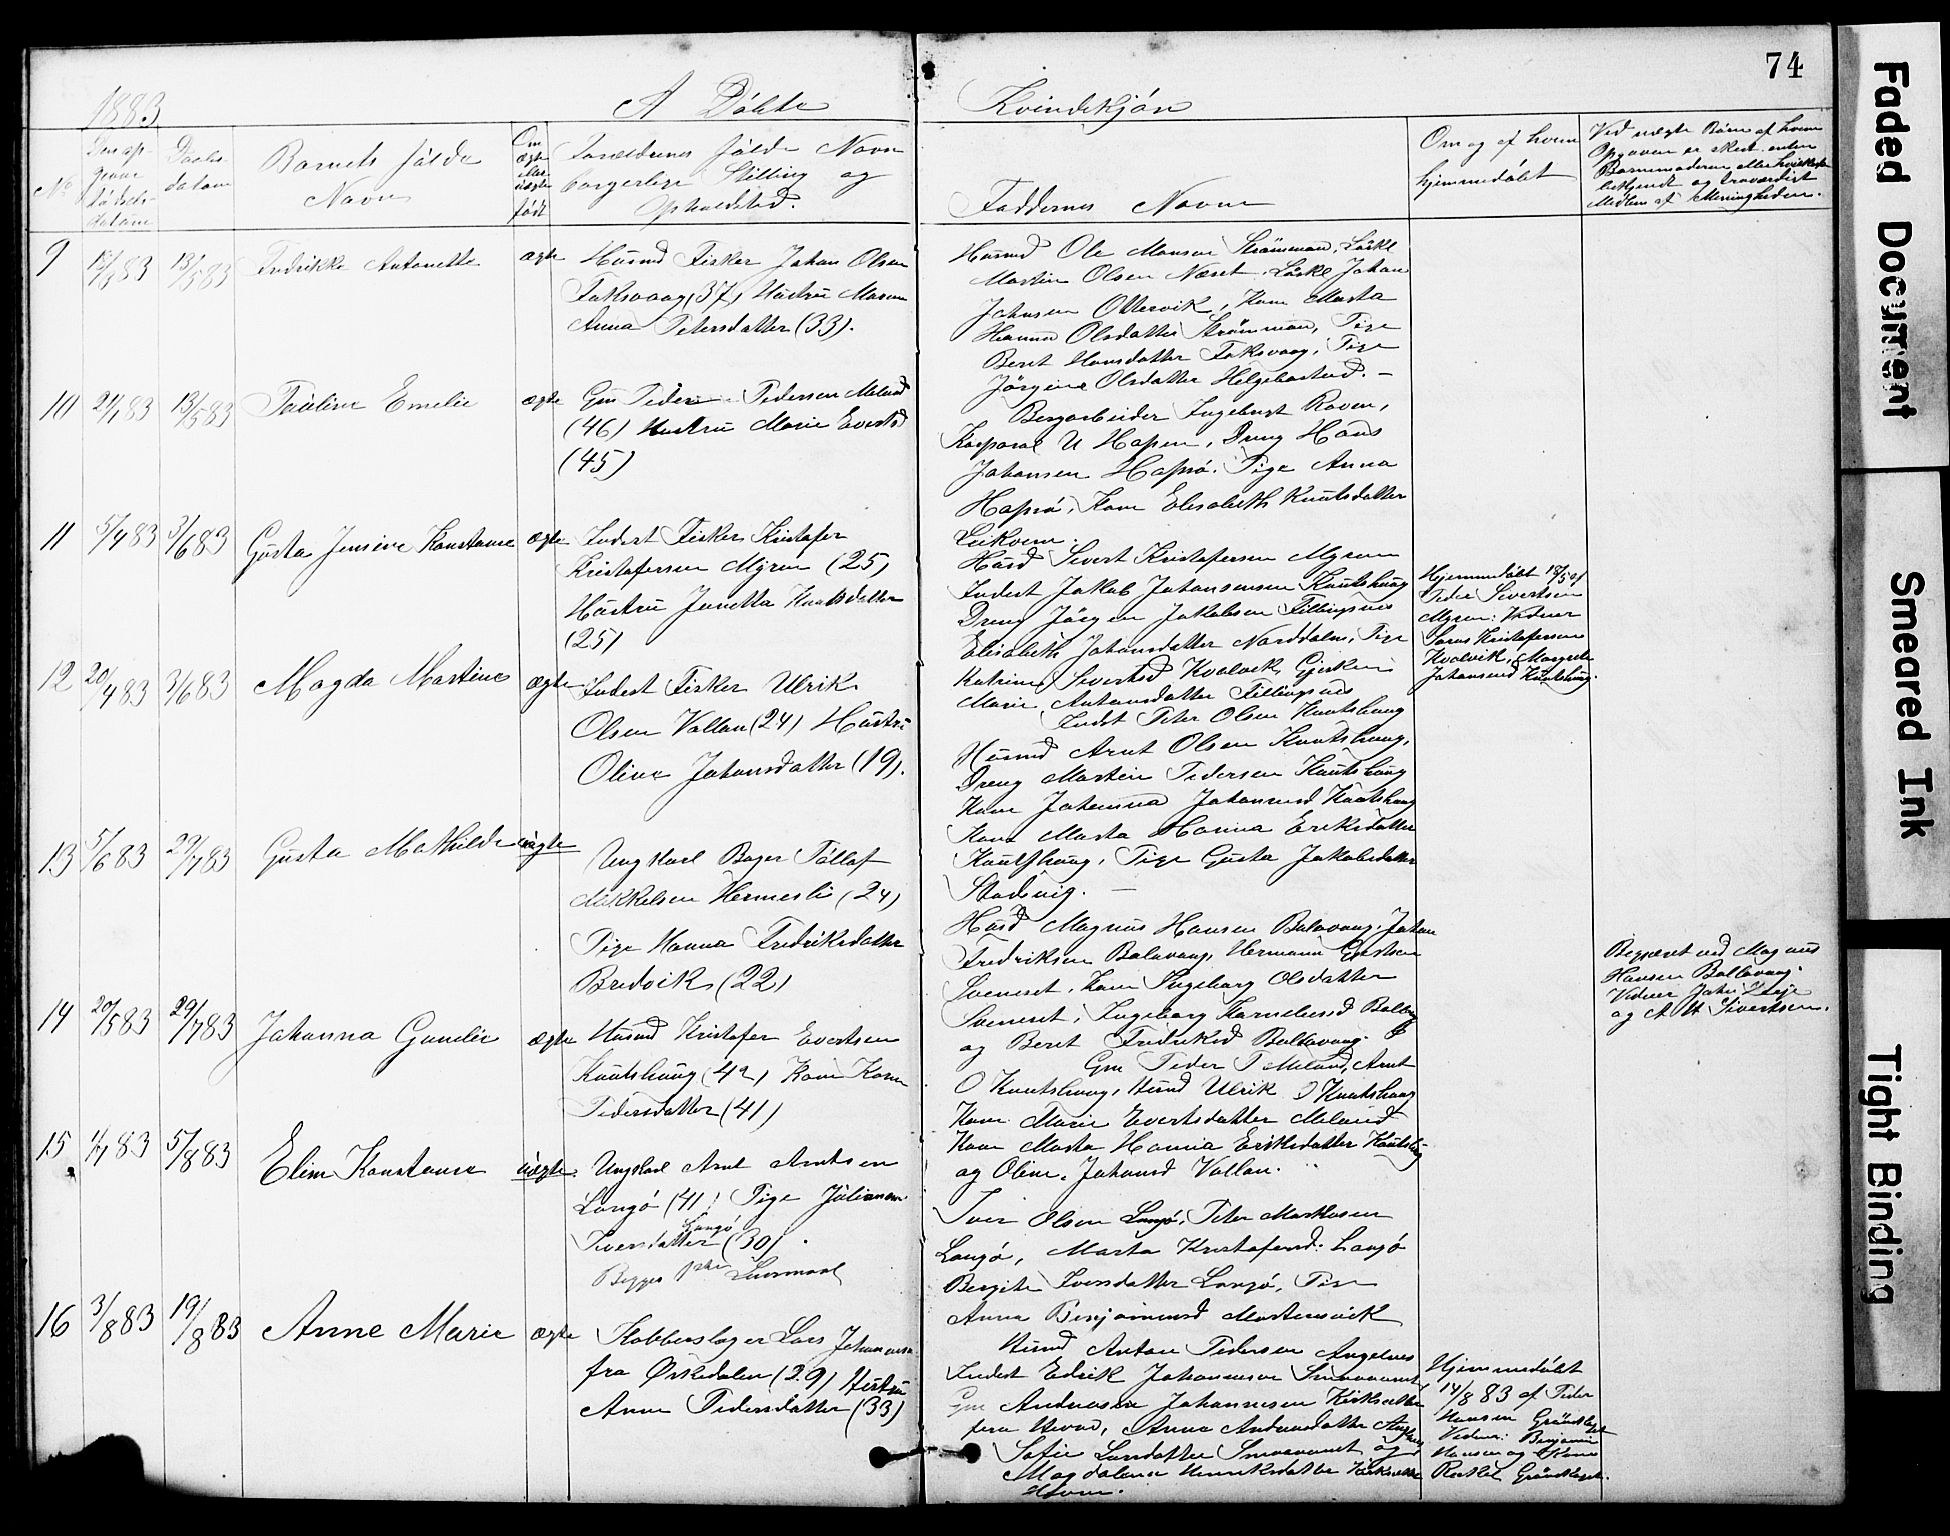 74
1883
A Döbte
Kvindekjön
No
Den op-
givne
födsels-
datum
Daabs-
datum
Barnets fulde
Navn
Om
ægte
eller
uægte
födt
Forældrenes fulde Navn
borgerlige Stilling og
Opholdsted.
Faddernes Navne
Om og af hvem
hjemmedöbt
Ved uægte Börn af hvem
Opgaven er skeet enten
Barnemoderen eller hvilket
bekjendt og troværdigt
Medlem af Menigheden.
9
13/5 83
Fredrikke Antonette
ægte
Husmd Fisker Johan Olsen
Taksvaag (37) Hustru Maren
Anna Petersdatter (33).
Husmd Ole Monsen Strömman, Löskl
Martin Olsen Næset, Löskl Johan
Johnsen Ottervik, Kone Marta
Hanna Olsdatter Strömman, Pige
Beret Hansdatter Taksvaag, Pige
Jörgine Olsdatter Helgebostad. –
10
13/5 83
Pauline Emelie
ægte
Gm Peder Pedersen Meland
(46) Hustru Marie Evertsd
(45)
Bergarbeider Ingebrigt Roven,
Korporal U Hopen, Dreng Hans
Johansen Hapnö. Pige Anna
Hapnö, Kone Elisabeth Knutsdatter
Leikvem.
11
5/4 83
3/6 83
Gusta Jensine Konstanse
ægte
Inderst Fisker Kristofer
Kristofersen Myren (25)
Hustru Janetta Knutsdatter
(25)
Husd Sivert Kristofersen Myren
Inderst Jakob Johannesen Knutshaug
Dreng Jörgen Jakobsen Fillingsnes
Elisabeth Johansdatter Norddalen, Pige
Katrine Sivertsd Kvalvik, Gjerken
Marie Antonsdatter Fillingsnes
Hjemmedöbt
Peder Sivertsen
Myren: Vidner
Lars Kristofersen
Kvalvik, Margrete
Johansend Knutshaug.
12
20/4 83
3/6 83
Magda Martine
ægte
Inderst Fisker Ulrik
Olsen Vollan (24) Hustru
Oline Johansdatter (19).
Indst Peter Olsen Knutshaug
Husmd Arnt Olsen Knutshaug,
Dreng Martin Pedersen Knutshaug
Kone Johanna Johannesd Knutshaug
Kone Marta Hanna Eriksdatter
Knutshaug, Pige Gusta Jakobsdatter
Stadsvig. –
13
5/6 83
29/7 83
Gusta Mathilde
uægte
Ungkarl Bager Tollef
Mikkelsen Hermesli (24)
Pige Hanna Fredriksdatter
Bredvik (22)
Husd Magnus Hansen Balsvaag, Johan
Fredriksen Balsvaag, Hermann
Sveneset, Kone Ingeborg Olsdatter
Sveneset, Ingeborg
og Beret Fredriksd Balsvaag.
Begjæret ved Magnus
Hansen
Vidner
og A M Sivertsen.
14
20/5 83
29/7 83
Johanna Gundie
ægte
Husmd Kristofer Evertsen
Knutshaug (42) Kone Karen
Pedersdatter (41)
Gm Peder P Meland, Arnt
O Knutshaug, Husmd Ulrik O Knutshaug
Kone Marie Evertsdatter Meland
Kone Marta Hanna Eriksdatter Knutshaug
og Oline Johansd Vollan.
15
5/8 83
Eline Konstanse
uægte
Ungkarl Arnt Arntsen
Langö (41) Pige Juliane
Langö
Iversdatter (30).
Begges
Iver Olsen Langö, Peter Markusen
Langö, Marta Kristofersd: Langö
Bergite Iversdatter Langö, Pige
Anna Benjaminsd Mortensvik
16
3/8 83
19/8 83
Anne Marie
ægte
Kobberslager Lars Johannesen
fra Örskedalen (29) Hustru
Anne Pedersdatter (33)
Husmd Anton Pedersen Angelnes
Inderst Edrik Johannesen
Gm Andreas Johannesen
fra Hevne, Anna Andersdatter
Sofie Larsdatter og
Magdalena Henriksdatter
Hevne.
Hjemmedöbt
14/8 83 af Peder
Hansen
Vidner: Benjamin
Hansen og
Faded Document
Smeared Ink
Tight Binding